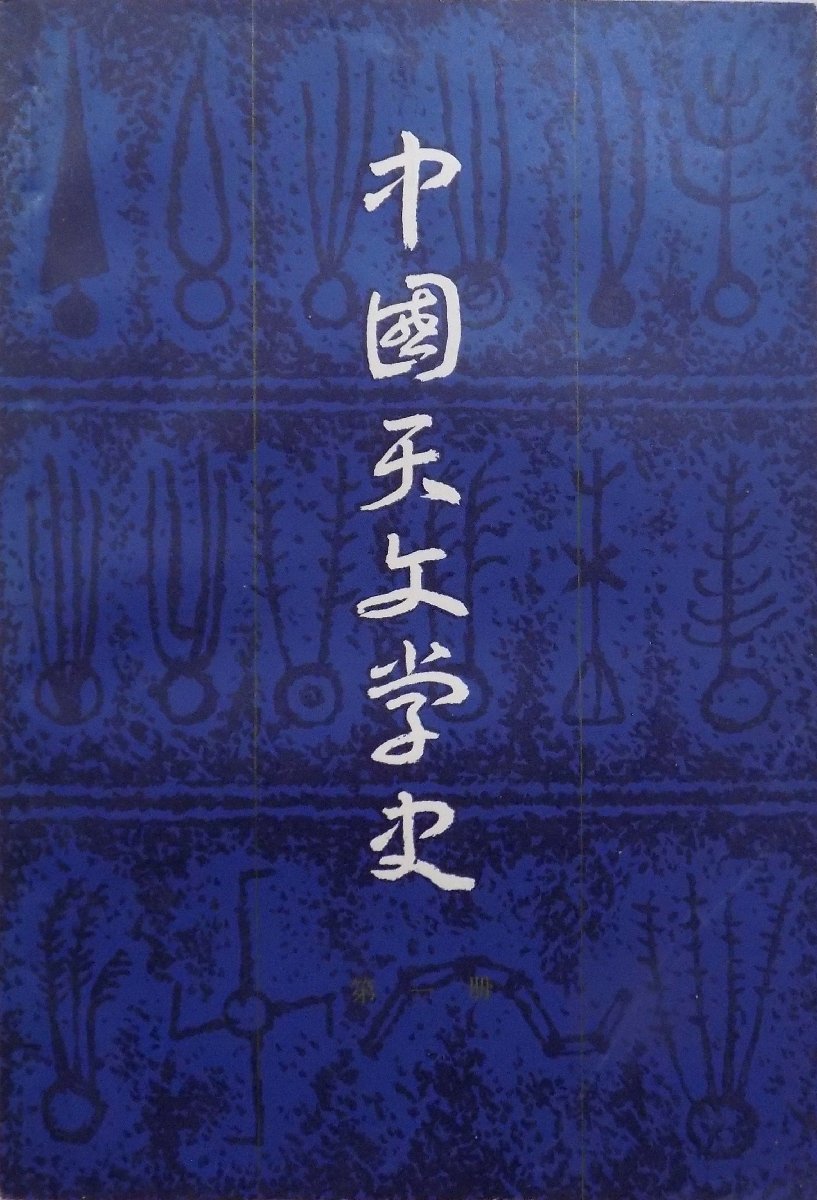 中國天文学史
第一冊